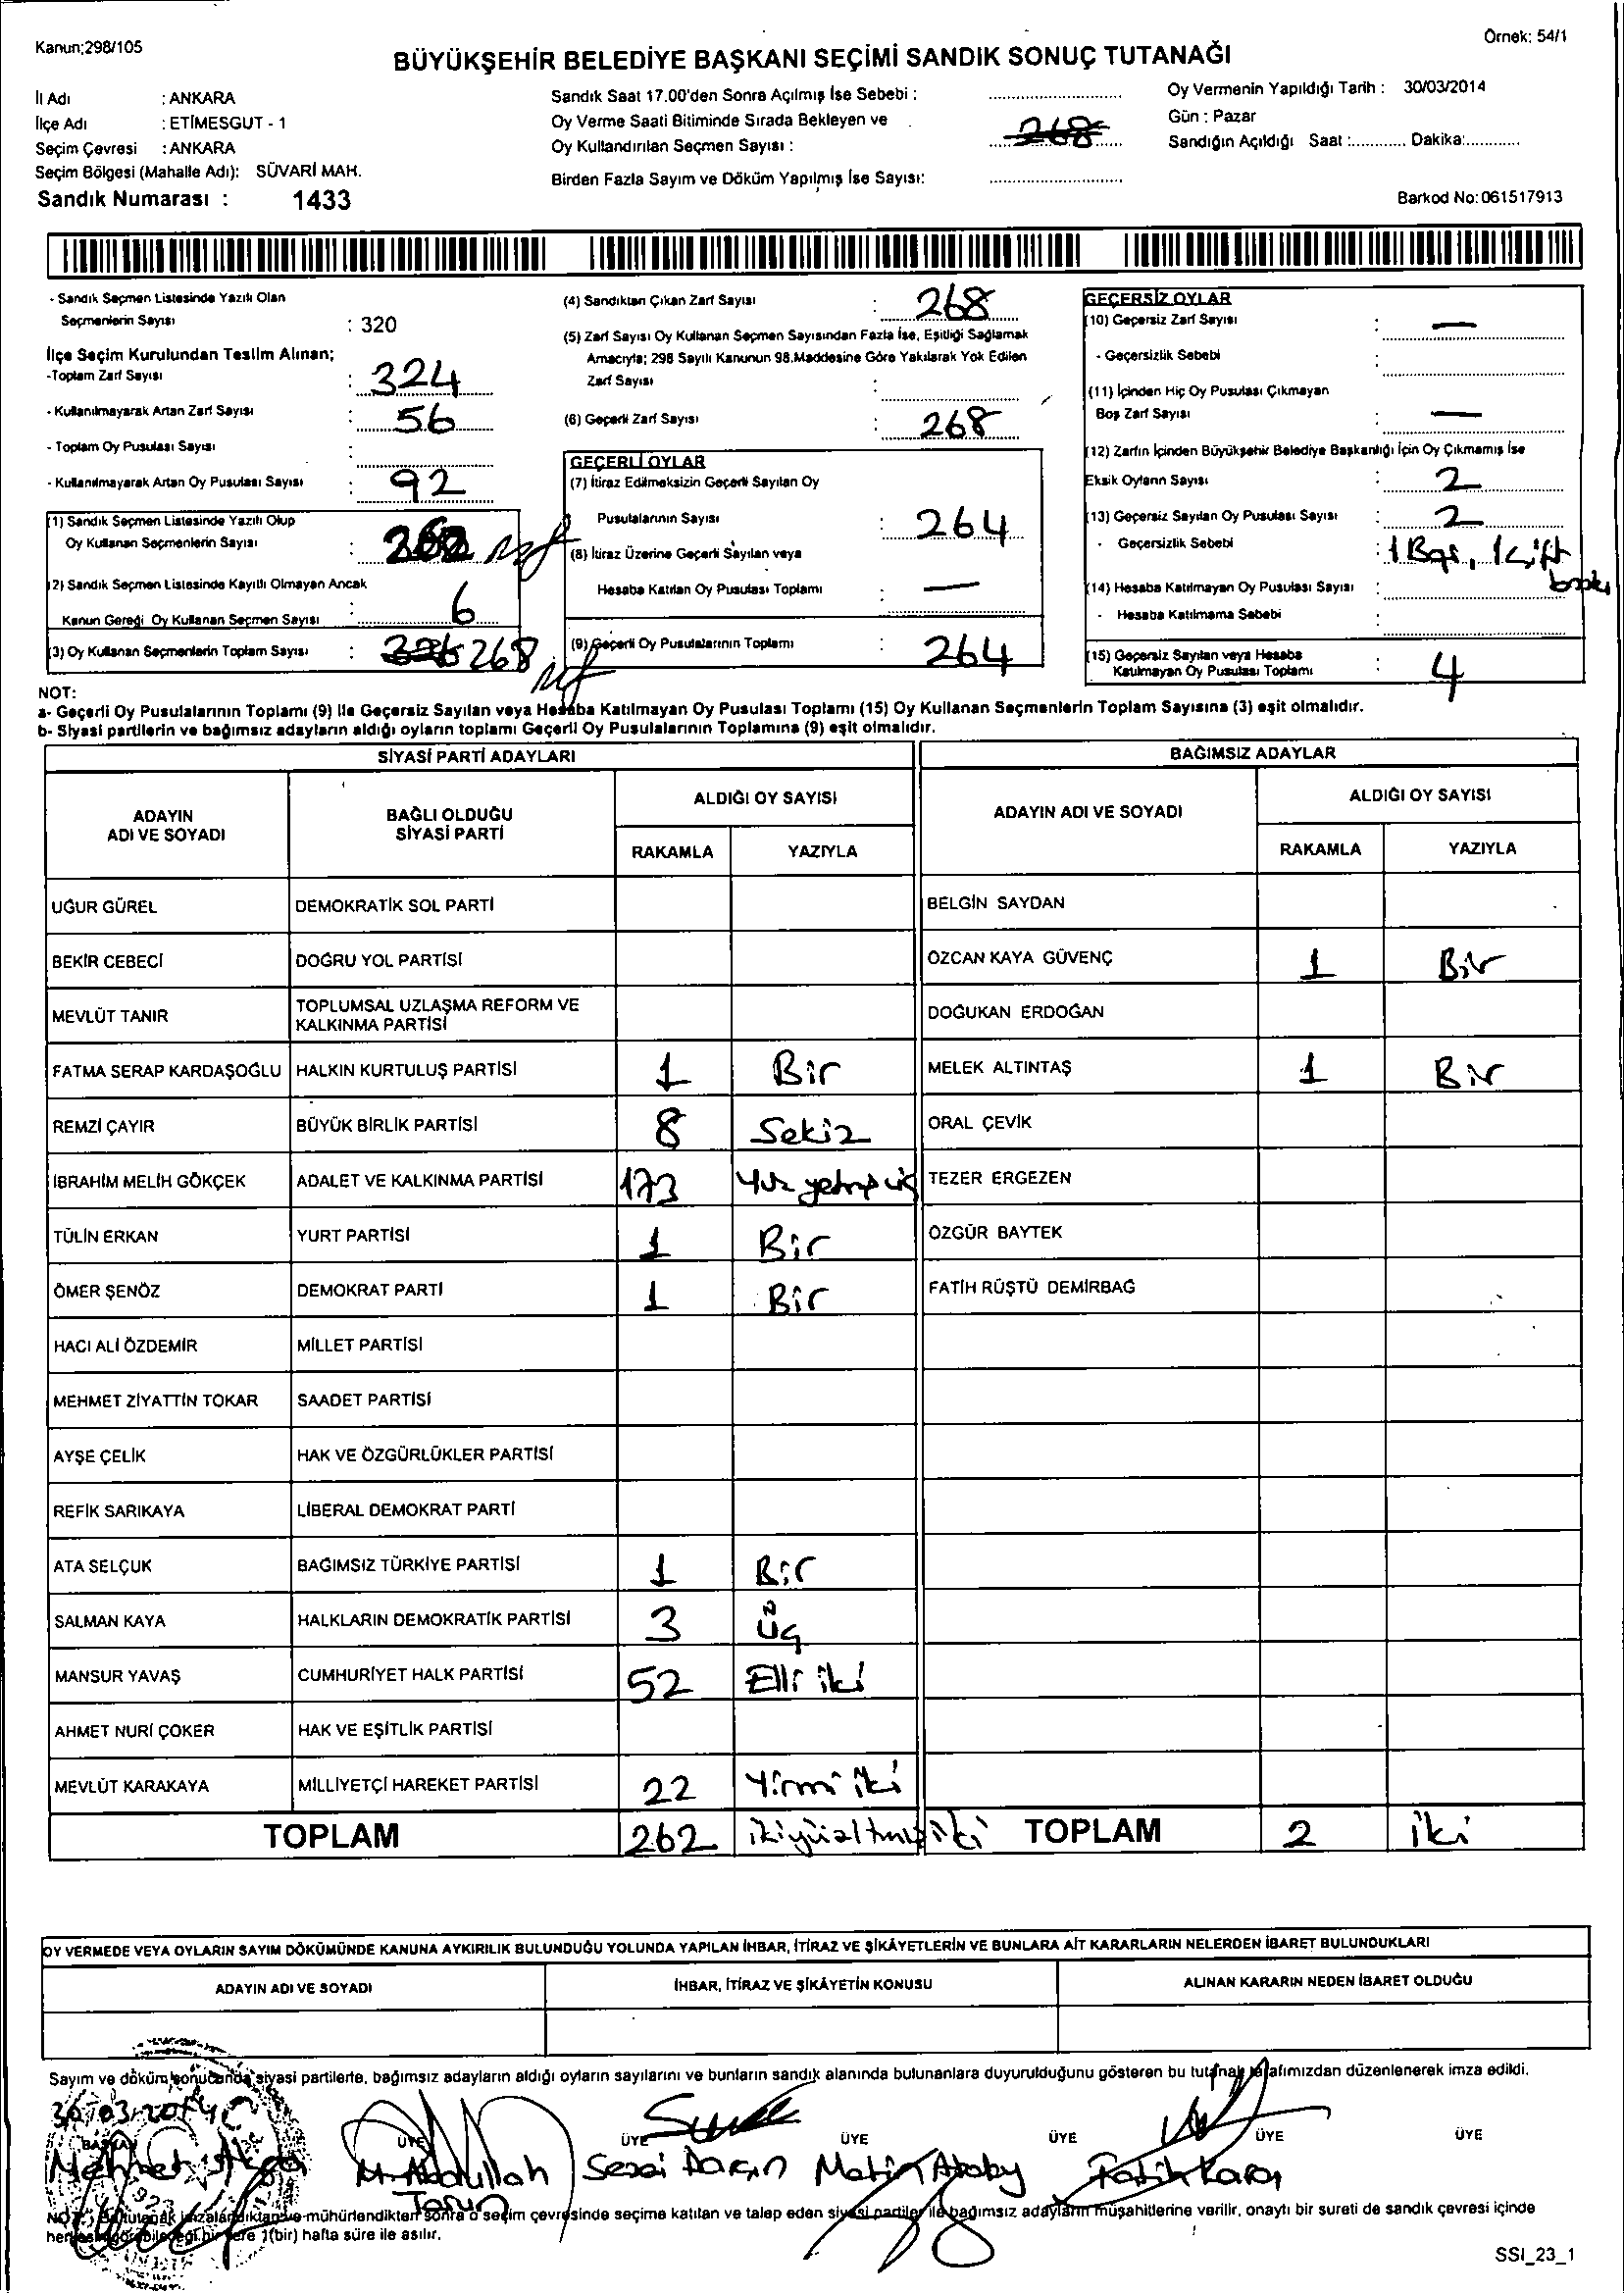 Kanun;298/105
Örnek: 54/1
BÜYÜKŞEHİR BELEDİYE BAŞKANI SEÇİMİ SANDIK SONUÇ TUTANAĞI
İl Adı : ANKARA
İlçe Adı : ETİMESGUT - 1
Seçim Çevresi : ANKARA
Seçim Bölgesi (Mahalle Adı): SÜVARİ MAH.
Sandık Numarası : 1433
Sandık Saat 17.00'den Sonra Açılmış İse Sebebi :
Oy Verme Saati Bitiminde Sırada Bekleyen ve
Oy Kullandırılan Seçmen Sayısı : 268
Birden Fazla Sayım ve Döküm Yapılmış İse Sayısı:
Oy Vermenin Yapıldığı Tarih : 30/03/2014
Gün : Pazar
Sandığın Açıldığı Saat :............ Dakika:............
Barkod No: 061517913
- Sandık Seçmen Listesinde Yazılı Olan
Seçmenlerin Sayısı : 320
İlçe Seçim Kurulundan Teslim Alınan;
-Toplam Zarf Sayısı : 324
- Kullanılmayarak Artan Zarf Sayısı : 56
- Toplam Oy Pusulası Sayısı :
- Kullanılmayarak Artan Oy Pusulası Sayısı : 92
(1) Sandık Seçmen Listesinde Yazılı Olup
Oy Kullanan Seçmenlerin Sayısı :
(2) Sandık Seçmen Listesinde Kayıtlı Olmayan Ancak
Kanun Gereği Oy Kullanan Seçmen Sayısı : 6
(3) Oy Kullanan Seçmenlerin Toplam Sayısı : 326 268
(4) Sandıktan Çıkan Zarf Sayısı : 268
(5) Zarf Sayısı Oy Kullanan Seçmen Sayısından Fazla İse, Eşitliği Sağlamak
Amacıyla; 298 Sayılı Kanunun 98.Maddesine Göre Yakılarak Yok Edilen
Zarf Sayısı :
(6) Geçerli Zarf Sayısı : 268
GEÇERLİ OYLAR
(7) İtiraz Edilmeksizin Geçerli Sayılan Oy
Pusulalarının Sayısı : 264
(8) İtiraz Üzerine Geçerli Sayılan veya
Hesaba Katılan Oy Pusulası Toplamı : —
(9) Geçerli Oy Pusulalarının Toplamı : 264
GEÇERSİZ OYLAR
(10) Geçersiz Zarf Sayısı : —
- Geçersizlik Sebebi :
(11) İçinden Hiç Oy Pusulası Çıkmayan
Boş Zarf Sayısı : —
(12) Zarfın İçinden Büyükşehir Belediye Başkanlığı İçin Oy Çıkmamış İse
Eksik Oyların Sayısı : 2
(13) Geçersiz Sayılan Oy Pusulası Sayısı : 2
- Geçersizlik Sebebi : 1 Boş, 1 çift
baskı
(14) Hesaba Katılmayan Oy Pusulası Sayısı :
- Hesaba Katılmama Sebebi :
(15) Geçersiz Sayılan veya Hesaba
Katılmayan Oy Pusulası Toplamı : 4
NOT:
a- Geçerli Oy Pusulalarının Toplamı (9) ile Geçersiz Sayılan veya Hesaba Katılmayan Oy Pusulası Toplamı (15) Oy Kullanan Seçmenlerin Toplam Sayısına (3) eşit olmalıdır.
b- Siyasi partilerin ve bağımsız adayların aldığı oyların toplamı Geçerli Oy Pusulalarının Toplamına (9) eşit olmalıdır.
SİYASİ PARTİ ADAYLARI
ADAYIN ADI VE SOYADI BAĞLI OLDUĞU SİYASİ PARTİ ALDIĞI OY SAYISI
RAKAMLA YAZIYLA
UĞUR GÜREL DEMOKRATİK SOL PARTİ
BEKİR CEBECİ DOĞRU YOL PARTİSİ
MEVLÜT TANIR TOPLUMSAL UZLAŞMA REFORM VE KALKINMA PARTİSİ
FATMA SERAP KARDAŞOĞLU HALKIN KURTULUŞ PARTİSİ 1 Bir
REMZİ ÇAYIR BÜYÜK BİRLİK PARTİSİ 8 Sekiz
İBRAHİM MELİH GÖKÇEK ADALET VE KALKINMA PARTİSİ 173 Yüz yetmiş üç
TÜLİN ERKAN YURT PARTİSİ 1 Bir
ÖMER ŞENÖZ DEMOKRAT PARTİ 1 Bir
HACI ALİ ÖZDEMİR MİLLET PARTİSİ
MEHMET ZİYATTİN TOKAR SAADET PARTİSİ
AYŞE ÇELİK HAK VE ÖZGÜRLÜKLER PARTİSİ
REFİK SARIKAYA LİBERAL DEMOKRAT PARTİ
ATA SELÇUK BAĞIMSIZ TÜRKİYE PARTİSİ 1 Bir
SALMAN KAYA HALKLARIN DEMOKRATİK PARTİSİ 3 Üç
MANSUR YAVAŞ CUMHURİYET HALK PARTİSİ 52 Elli iki
AHMET NURİ ÇOKER HAK VE EŞİTLİK PARTİSİ
MEVLÜT KARAKAYA MİLLİYETÇİ HAREKET PARTİSİ 22 Yirmi iki
TOPLAM 262 ikiyüzaltmışiki
BAĞIMSIZ ADAYLAR
ADAYIN ADI VE SOYADI ALDIĞI OY SAYISI
RAKAMLA YAZIYLA
BELGİN SAYDAN
ÖZCAN KAYA GÜVENÇ 1 Bir
DOĞUKAN ERDOĞAN
MELEK ALTINTAŞ 1 Bir
ORAL ÇEVİK
TEZER ERGEZEN
ÖZGÜR BAYTEK
FATİH RÜŞTÜ DEMİRBAĞ
TOPLAM 2 iki
OY VERMEDE VEYA OYLARIN SAYIM DÖKÜMÜNDE KANUNA AYKIRILIK BULUNDUĞU YOLUNDA YAPILAN İHBAR, İTİRAZ VE ŞİKÂYETLERİN VE BUNLARA AİT KARARLARIN NELERDEN İBARET BULUNDUKLARI
ADAYIN ADI VE SOYADI İHBAR, İTİRAZ VE ŞİKÂYETİN KONUSU ALINAN KARARIN NEDEN İBARET OLDUĞU
Sayım ve döküm sonucunda siyasi partilerle, bağımsız adayların aldığı oyların sayılarını ve bunların sandık alanında bulunanlara duyurulduğunu gösteren bu tutanak tarafımızdan düzenlenerek imza edildi.
30/03/2014
BAŞKAN ÜYE ÜYE ÜYE ÜYE ÜYE ÜYE
Mehmet M. Abdullah Sezai Metin Fatih Kara
NOT: Bu tutanak imzalandıktan ve mühürlendikten sonra o seçim çevresinde seçime katılan ve talep eden siyasi partiler ile bağımsız adayların müşahitlerine verilir, onaylı bir sureti de sandık çevresi içinde
herkesin görebileceği bir yere 1(bir) hafta süre ile asılır.
SSI_23_1